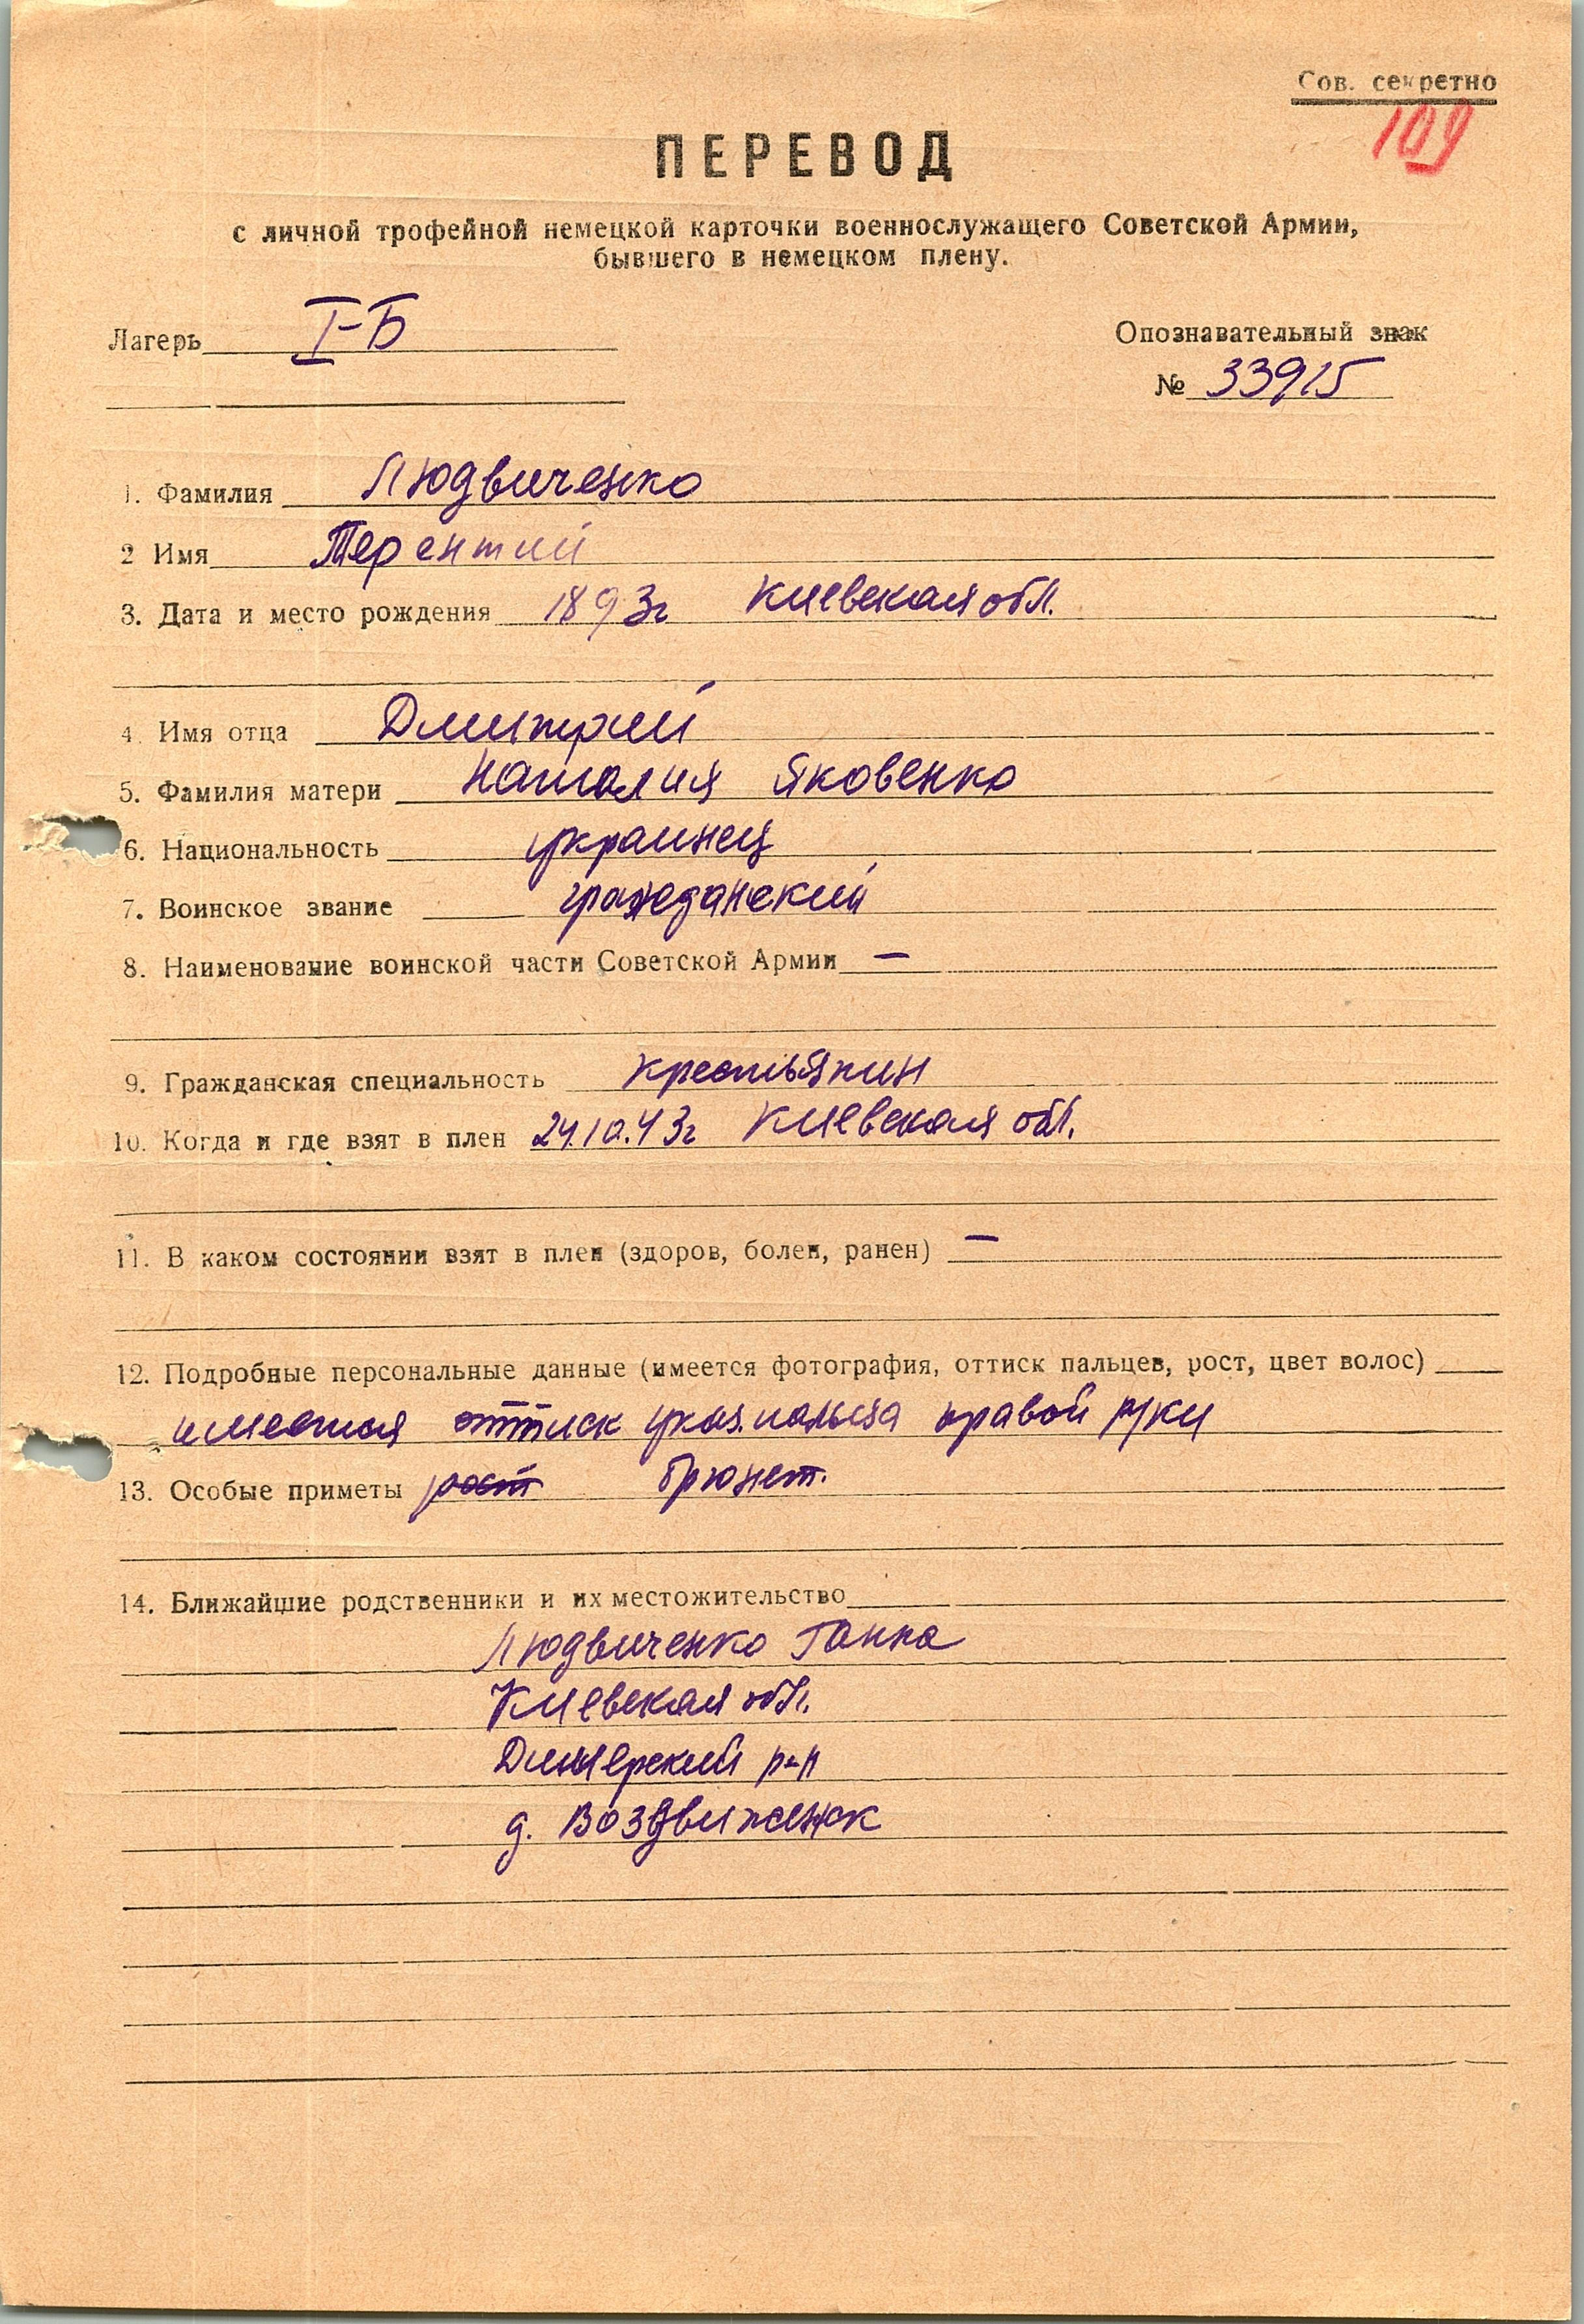 Сов. секретно
109
ПЕРЕВОД
с личной трофейной немецкой карточки военнослужащего Советской Армии,
бывшего в немецком плену.
Лагерь I-Б
Опознавательный знак
№ 33915
1. Фамилия Людвиченко
2 Имя Терентий
3. Дата и место рождения 1893г Киевская обл.
4. Имя отца Дмитрий
5. Фамилия матери Наталия Яковенко
6. Национальность украинец
7. Воинское звание гражданский
8. Наименование воинской части Советской Армии —
9. Гражданская специальность крестьянин
10. Когда и где взят в плен 24.10.43г Киевская обл.
11. В каком состоянии взят в плен (здоров, болен, ранен) —
12. Подробные персональные данные (имеется фотография, оттиск пальцев, рост, цвет волос)
имеется оттиск указ. пальца правой руки
13. Особые приметы рост брюнет.
14. Ближайшие родственники и их местожительство
Людвиченко Ганна
Киевская обл.
р-н
д. Воздвиженск